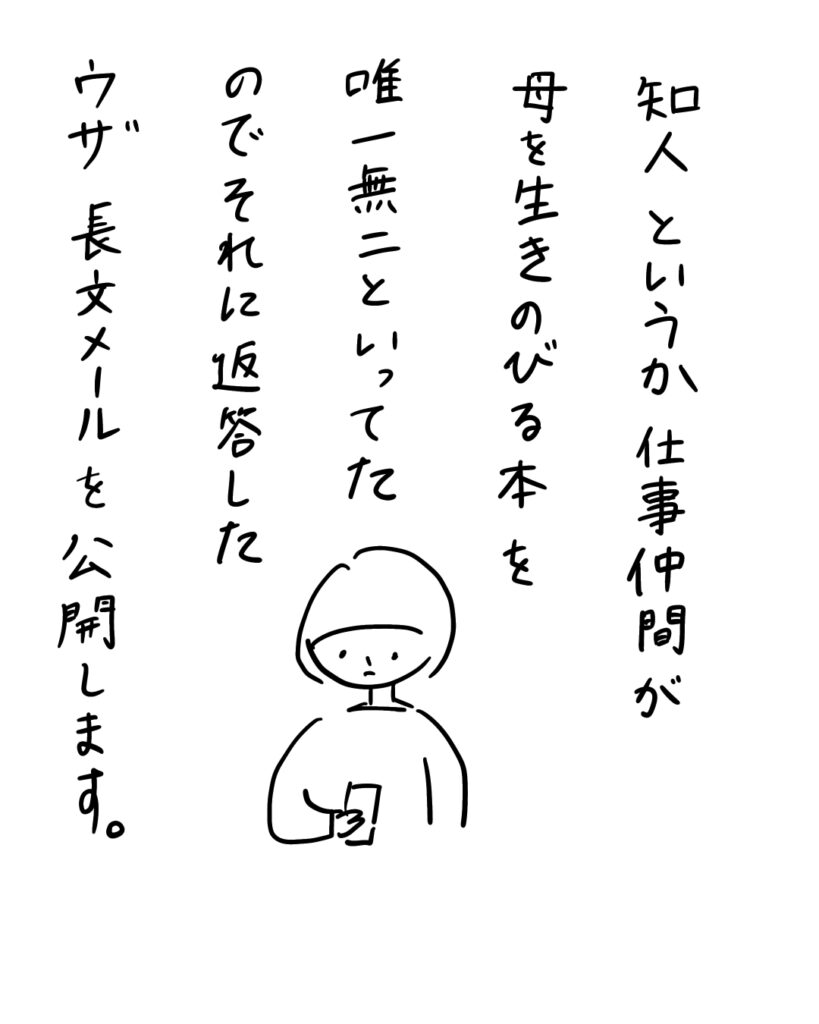 知人というか仕事仲間が
母を生きのびる本を
唯一無二といってた
のでそれに返答した
ウザ長文メールを公開します。